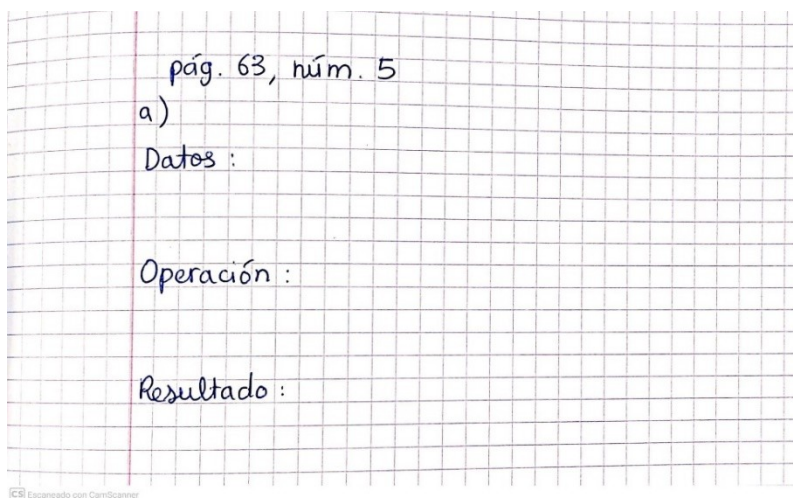 pág. 63, núm. 5
a)
Datos :
Operación :
Resultado :
CS Escaneado con CamScanner